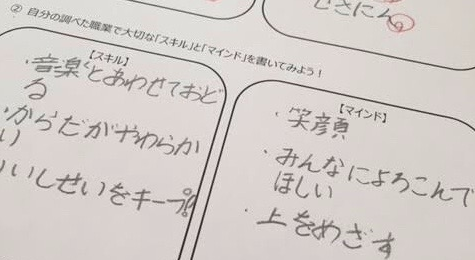 ② 自分の調べた職業で大切な「スキル」と「マインド」を書いてみよう!
【スキル】
・音楽とあわせておど
る
・からだがやわらか
い
いしせいをキープ
【マインド】
・笑顔
・みんなによろこんで
ほしい
・上をめざす